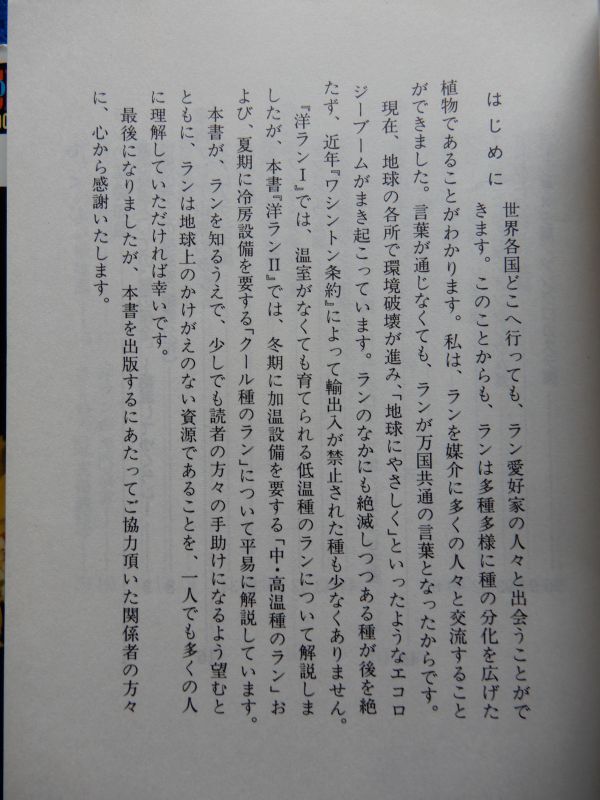 はじめに
世界各国どこへ行っても、ラン愛好家の人々と出会うことがで
きます。このことからも、ランは多種多様に種の分化を広げた
植物であることがわかります。私は、ランを媒介に多くの人々と交流すること
ができました。言葉が通じなくても、ランが万国共通の言葉となったからです。
現在、地球の各所で環境破壊が進み、「地球にやさしく」といったようなエコロ
ジーブームがまき起こっています。ランのなかにも絶滅しつつある種が後を絶
たず、近年『ワシントン条約』によって輸出入が禁止された種も少なくありません。
『洋ランⅠ』では、温室がなくても育てられる低温種のランについて解説しま
したが、本書『洋ランⅡ』では、冬期に加温設備を要する「中・高温種のラン」お
よび、夏期に冷房設備を要する「クール種のラン」について平易に解説しています。
本書が、ランを知るうえで、少しでも読者の方々の手助けになるよう望むと
ともに、ランは地球上のかけがえのない資源であることを、一人でも多くの人
に理解していただければ幸いです。
最後になりましたが、本書を出版するにあたってご協力頂いた関係者の方々
に、心から感謝いたします。